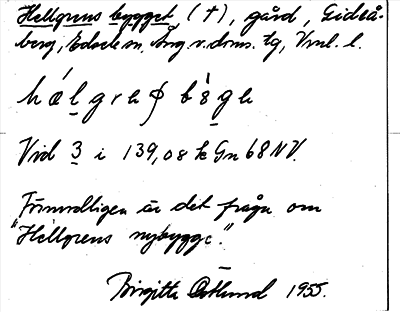 Hellgrens bygget, (†), gård, Gideå-
berg, Edsele sn, Ång. v. doms. tg, Vnl. l.
Vid 3 i 139,08 k Gn 68 NV.
Förmodligen är det fråga om
"Hellgrens nybygge".
Birgitta Östlund 1955.